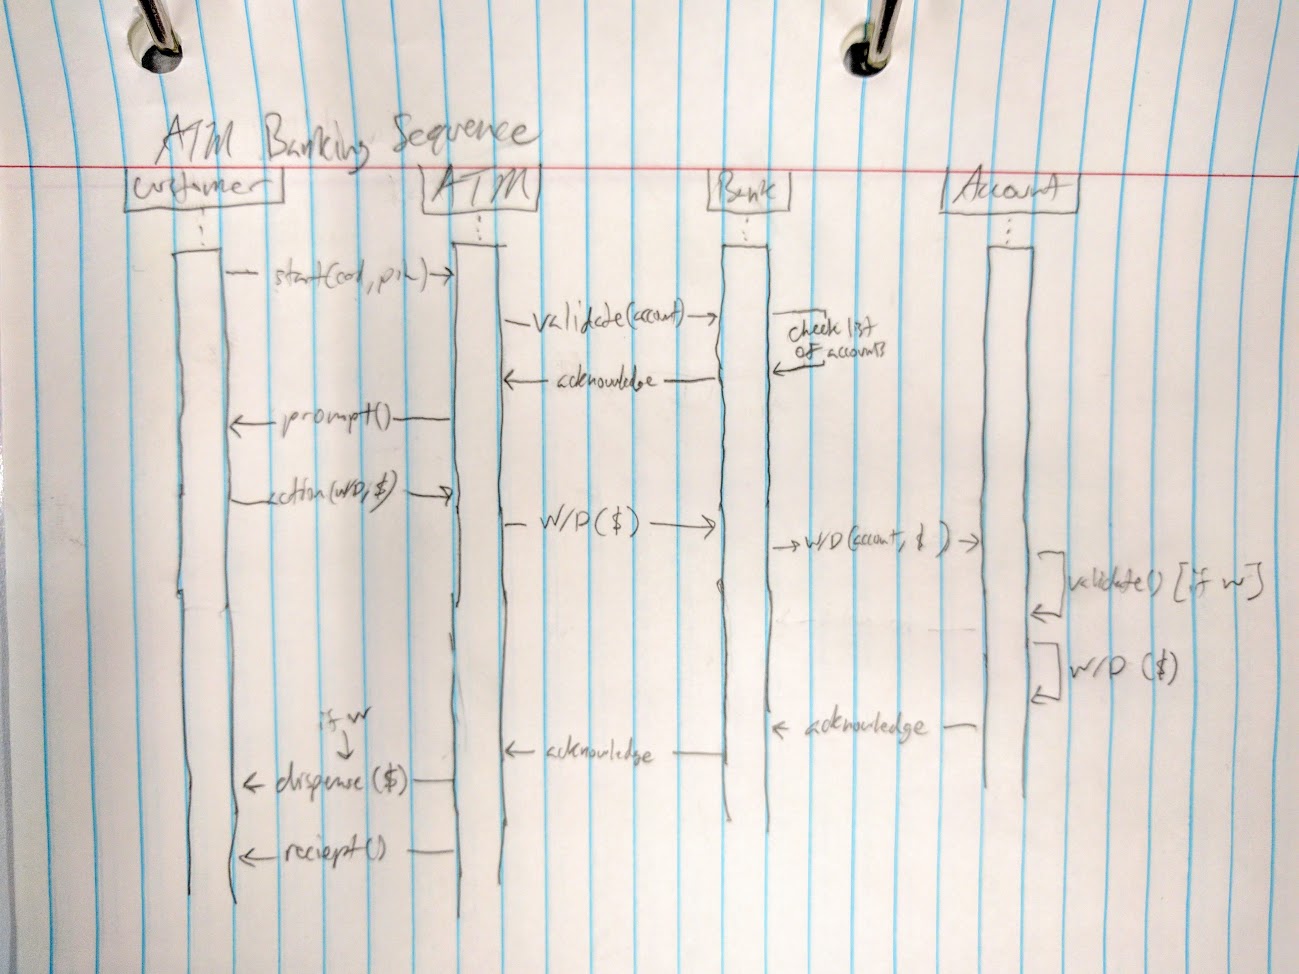 ATM Banking Sequence
Customer
ATM
Bank
Account
start(card, pin)
validate(account)
check list
of accounts
acknowledge
prompt()
action(W/D, $)
W/D($)
W/D(account, $)
validate() [if w]
W/D ($)
acknowledge
acknowledge
if w
dispense ($)
reciept()